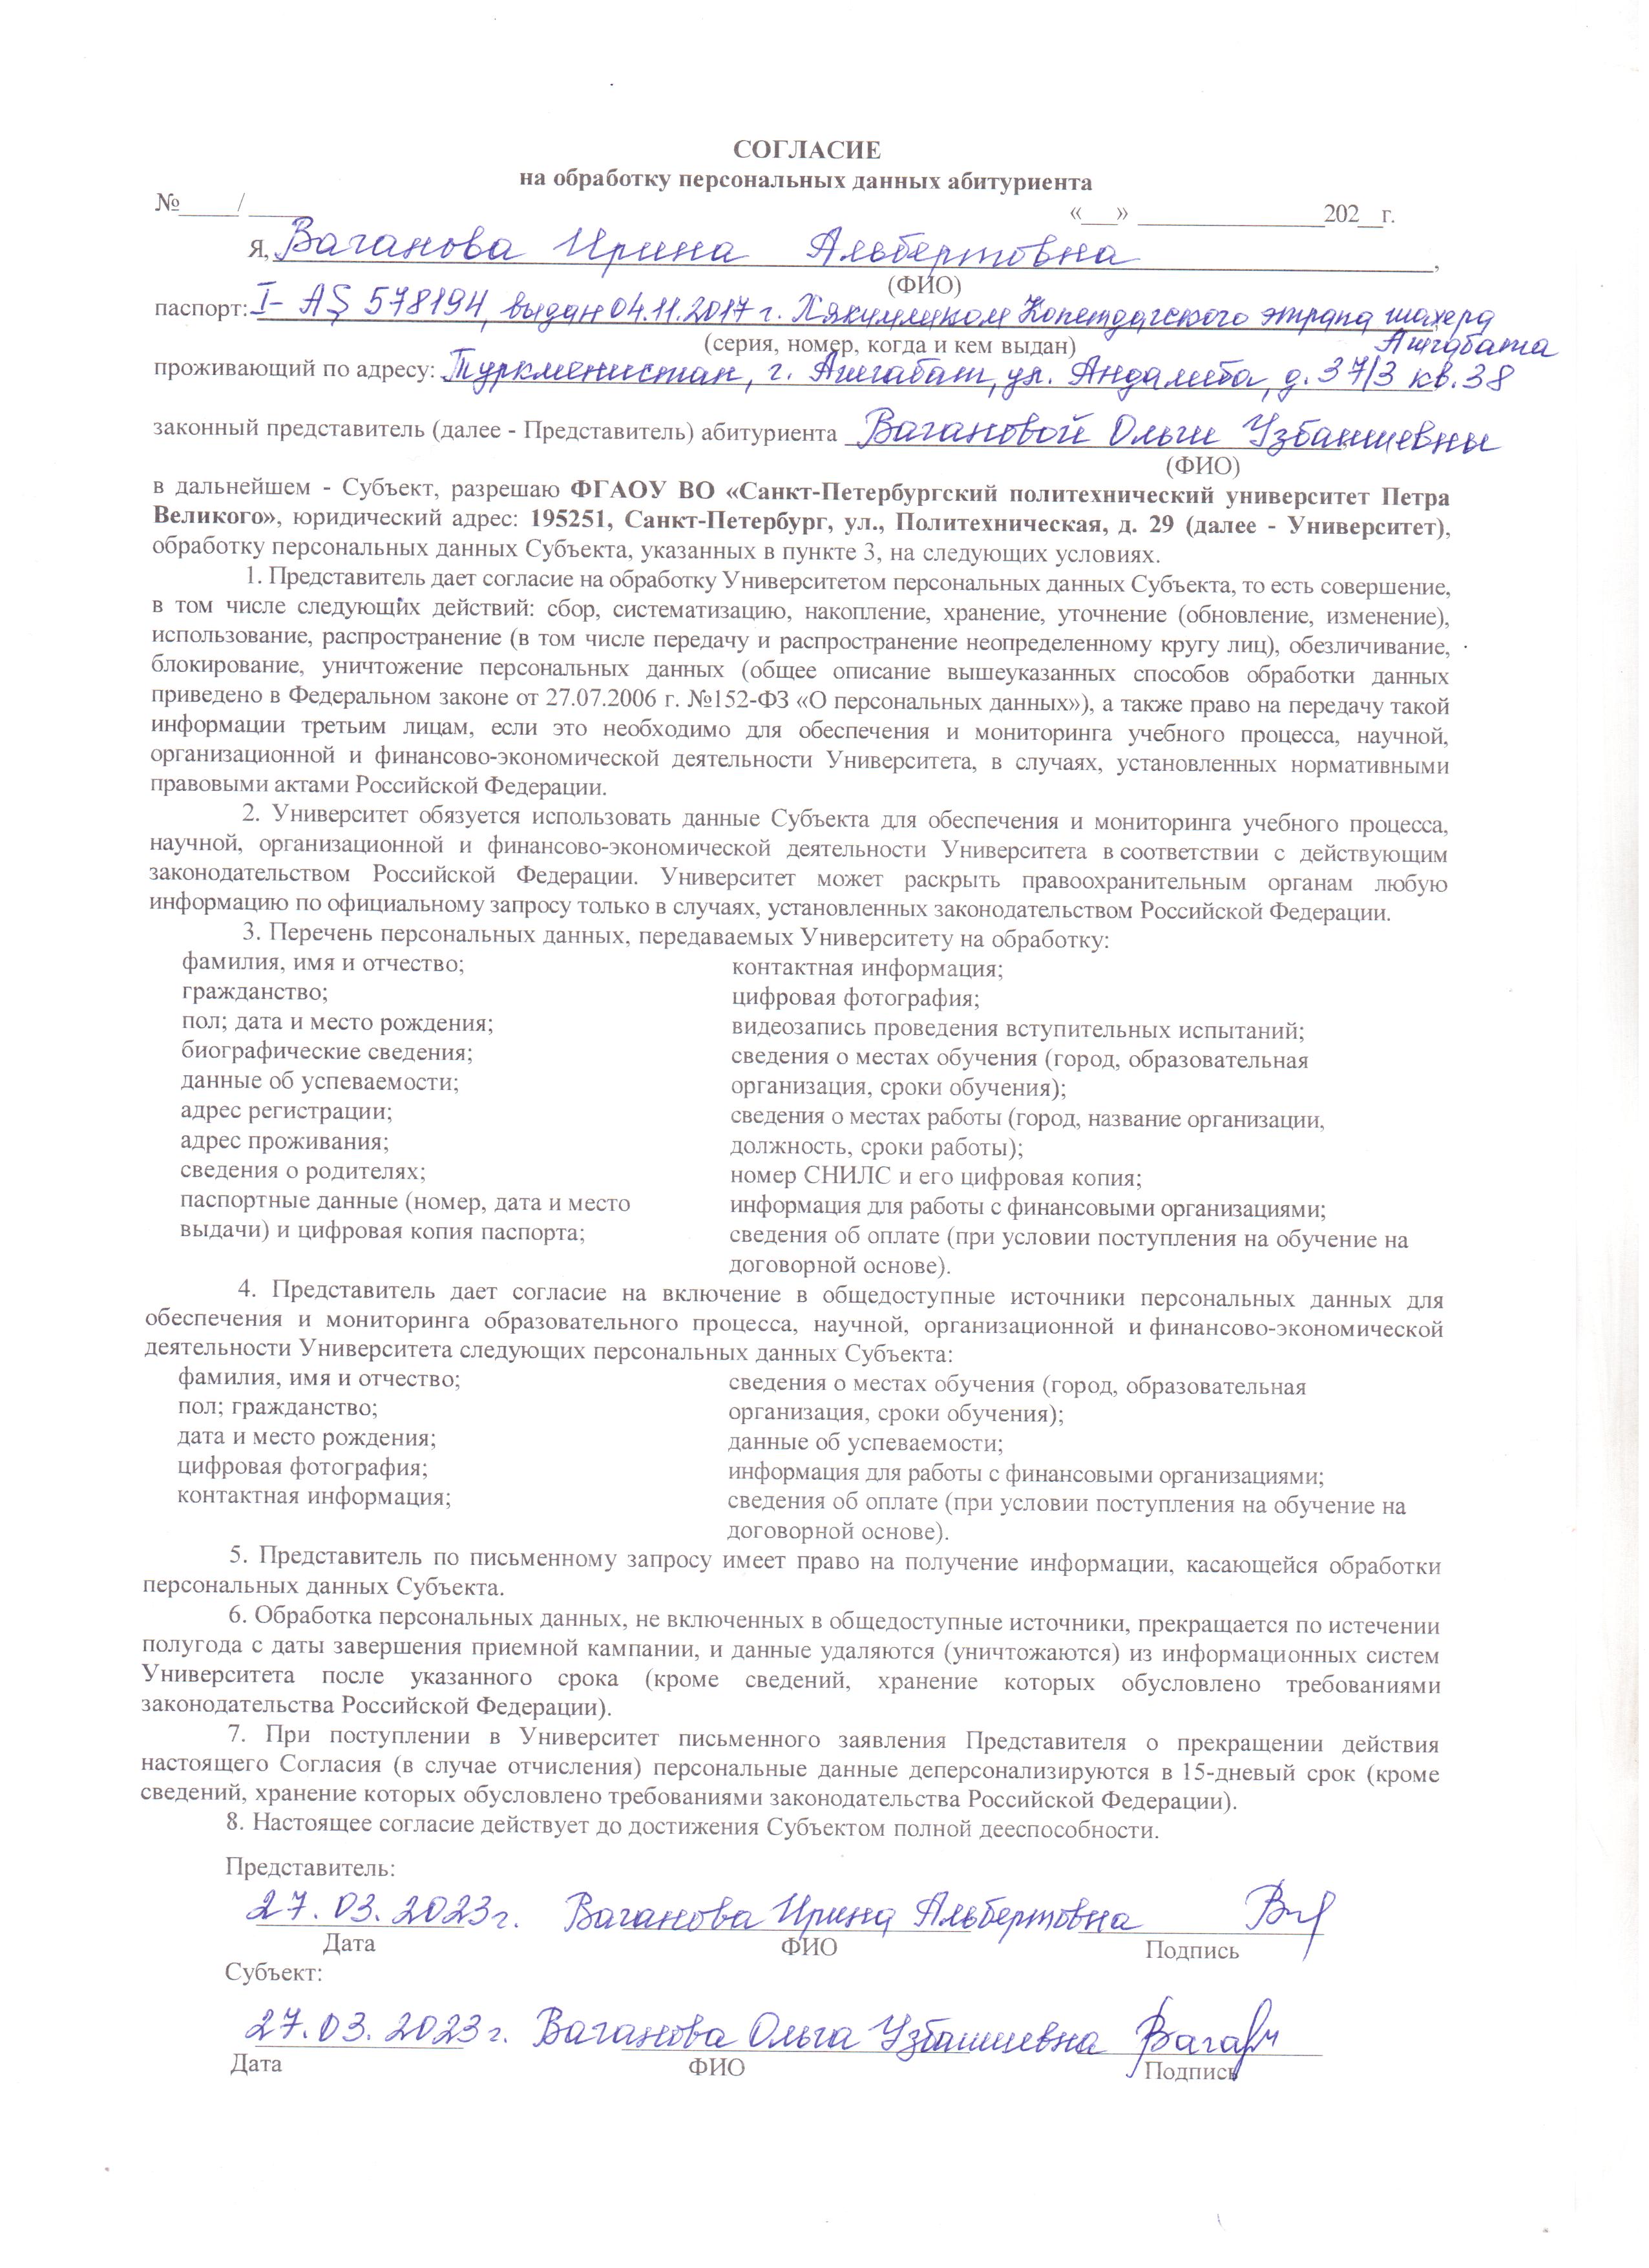 СОГЛАСИЕ
на обработку персональных данных абитуриента
№_____/ _____ «___» _______________202__г.
Я, Ваганова Ирина Альбертовна,
(ФИО)
паспорт: I-AŞ 578194, выдан 04.11.2017 г. Хякимликом Копетдагского этрапа шахера
(серия, номер, когда и кем выдан) Ашгабата
проживающий по адресу: Туркменистан, г. Ашгабат, ул. Андалиба, д. 37/3 кв. 38
законный представитель (далее - Представитель) абитуриента Вагановой Ольги Узбашиевны
(ФИО)
в дальнейшем - Субъект, разрешаю ФГАОУ ВО «Санкт-Петербургский политехнический университет Петра
Великого», юридический адрес: 195251, Санкт-Петербург, ул., Политехническая, д. 29 (далее - Университет),
обработку персональных данных Субъекта, указанных в пункте 3, на следующих условиях.
1. Представитель дает согласие на обработку Университетом персональных данных Субъекта, то есть совершение,
в том числе следующих действий: сбор, систематизацию, накопление, хранение, уточнение (обновление, изменение),
использование, распространение (в том числе передачу и распространение неопределенному кругу лиц), обезличивание,
блокирование, уничтожение персональных данных (общее описание вышеуказанных способов обработки данных
приведено в Федеральном законе от 27.07.2006 г. №152-ФЗ «О персональных данных»), а также право на передачу такой
информации третьим лицам, если это необходимо для обеспечения и мониторинга учебного процесса, научной,
организационной и финансово-экономической деятельности Университета, в случаях, установленных нормативными
правовыми актами Российской Федерации.
2. Университет обязуется использовать данные Субъекта для обеспечения и мониторинга учебного процесса,
научной, организационной и финансово-экономической деятельности Университета в соответствии с действующим
законодательством Российской Федерации. Университет может раскрыть правоохранительным органам любую
информацию по официальному запросу только в случаях, установленных законодательством Российской Федерации.
3. Перечень персональных данных, передаваемых Университету на обработку:
фамилия, имя и отчество;
гражданство;
пол; дата и место рождения;
биографические сведения;
данные об успеваемости;
адрес регистрации;
адрес проживания;
сведения о родителях;
паспортные данные (номер, дата и место
выдачи) и цифровая копия паспорта;
контактная информация;
цифровая фотография;
видеозапись проведения вступительных испытаний;
сведения о местах обучения (город, образовательная
организация, сроки обучения);
сведения о местах работы (город, название организации,
должность, сроки работы);
номер СНИЛС и его цифровая копия;
информация для работы с финансовыми организациями;
сведения об оплате (при условии поступления на обучение на
договорной основе).
4. Представитель дает согласие на включение в общедоступные источники персональных данных для
обеспечения и мониторинга образовательного процесса, научной, организационной и финансово-экономической
деятельности Университета следующих персональных данных Субъекта:
фамилия, имя и отчество;
пол; гражданство;
дата и место рождения;
цифровая фотография;
контактная информация;
сведения о местах обучения (город, образовательная
организация, сроки обучения);
данные об успеваемости;
информация для работы с финансовыми организациями;
сведения об оплате (при условии поступления на обучение на
договорной основе).
5. Представитель по письменному запросу имеет право на получение информации, касающейся обработки
персональных данных Субъекта.
6. Обработка персональных данных, не включенных в общедоступные источники, прекращается по истечении
полугода с даты завершения приемной кампании, и данные удаляются (уничтожаются) из информационных систем
Университета после указанного срока (кроме сведений, хранение которых обусловлено требованиями
законодательства Российской Федерации).
7. При поступлении в Университет письменного заявления Представителя о прекращении действия
настоящего Согласия (в случае отчисления) персональные данные деперсонализируются в 15-дневый срок (кроме
сведений, хранение которых обусловлено требованиями законодательства Российской Федерации).
8. Настоящее согласие действует до достижения Субъектом полной дееспособности.
Представитель:
27.03.2023г. Ваганова Ирина Альбертовна
Дата ФИО Подпись
Субъект:
27.03.2023г. Ваганова Ольга Узбашиевна
Дата ФИО Подпись